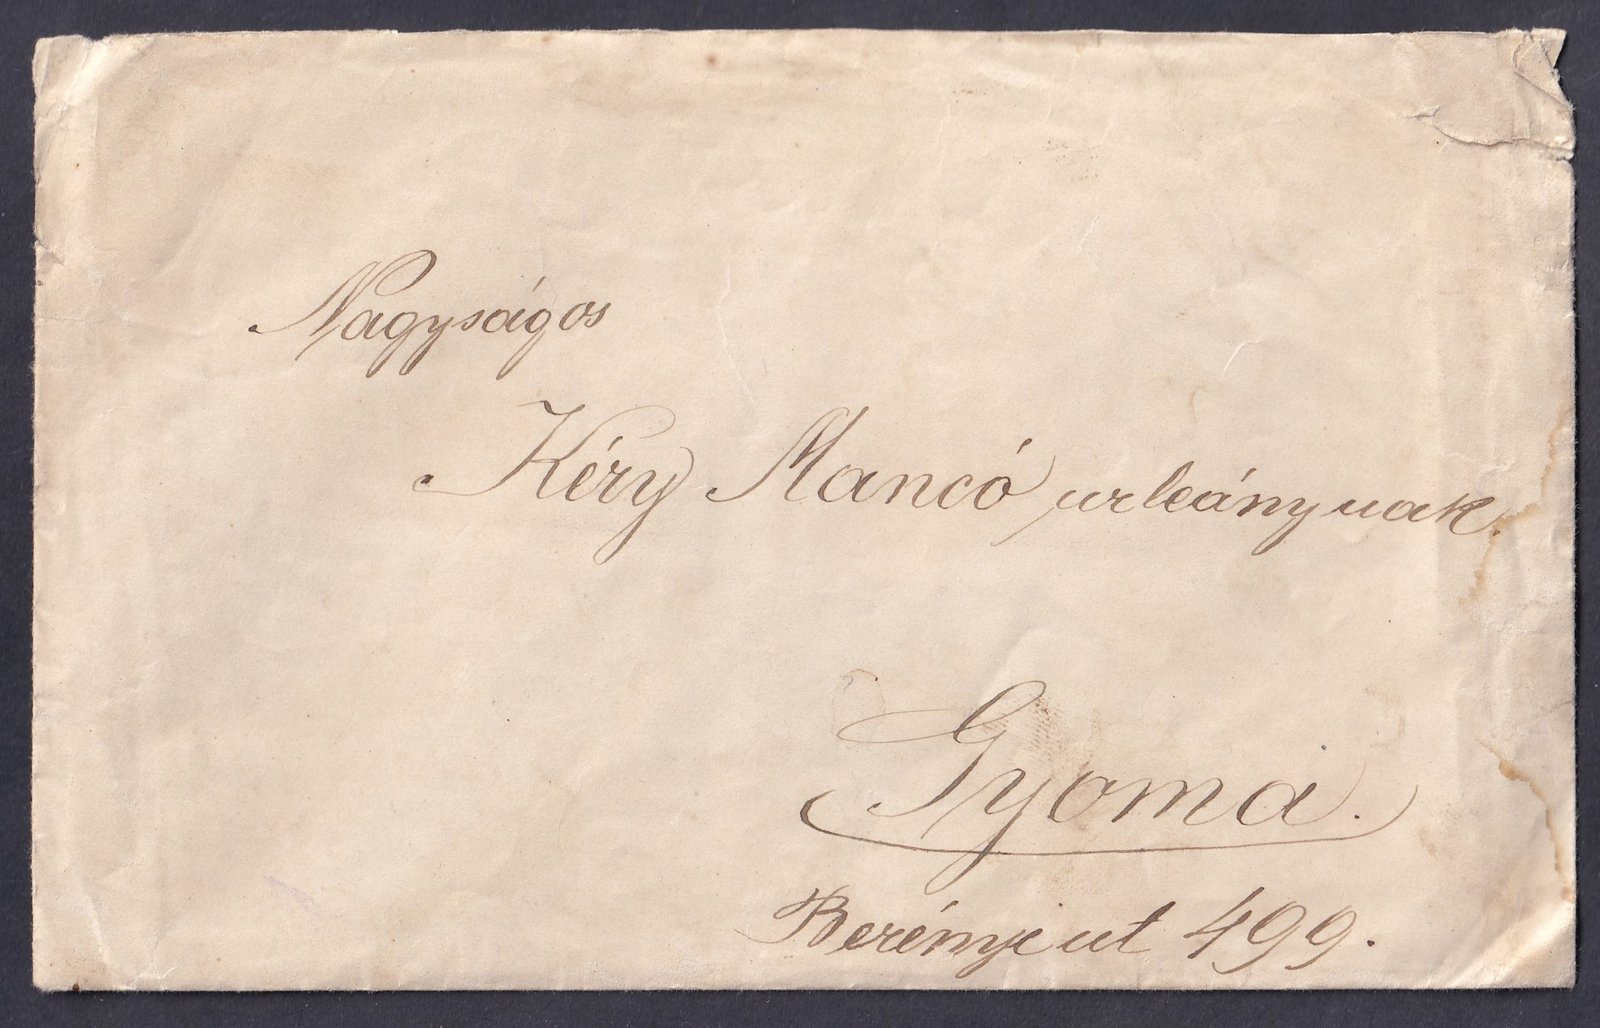 Nagyságos
Kéry Mancó urleánynak.
Gyoma.
Berényi ut 499.